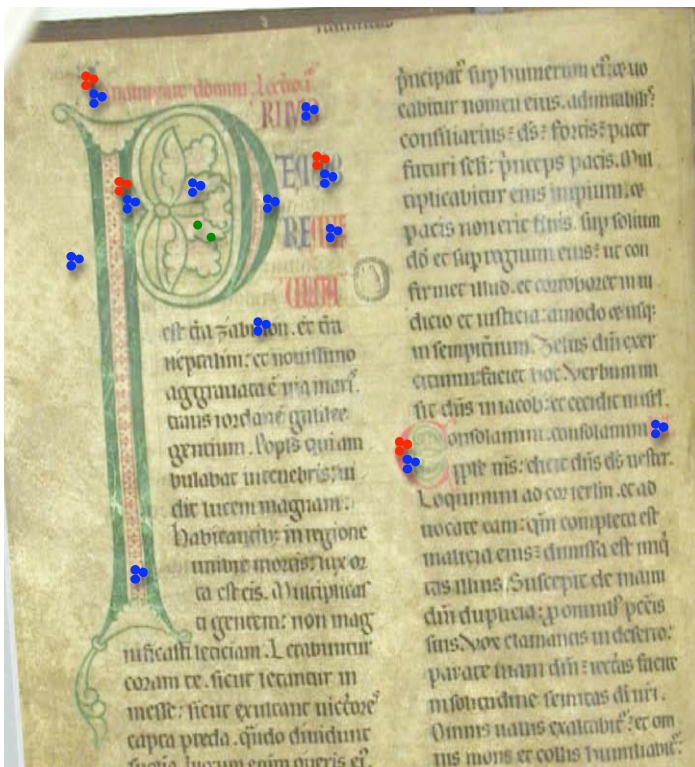 domini. Lectio. i.
PRIMO
TEMPORE
est t̄ra zabulon. et t̄ra
neptalim: et nouissimo
aggrauata ē uia maris.
trans iordanē galilee
gentium. Popl's qui am
bulabat in tenebris: ui
dit lucem magnam.
habitantib; in regione
umbre mortis: lux or
ta est eis. Multiplicas
ti gentem: non mag
nificasti leticiam. Letabuntur
coram te. sicut letantur in
messe: sicut exultant uictores
capta preda. q̄ndo diuidunt
enim oneris ei'.
p̄ncipat' sup humerum ei': & uo
cabitur nomen eius. admirabil'.
consiliarius: d's: fortis: pater
futuri sc̄li: p̄nceps pacis. Mul
tiplicabitur eius imperium: &
pacis non erit finis. sup solium
dd et sup regnum eius: ut con
firmet illud. et corroboret in iu
dicio et iusticia: amodo & usq;
in sempit̄num. Zelus dn̄i exer
cituum: faciet hoc. Verbum mi
sit dn̄s in iacob: et cecidit in isrl'.
Consolamini. consolamini
pple m̄s: dicit dn̄s d's uester.
Loquimini ad cor ierlm. et ad
uocate eam: qm̄ completa est
malicia eius: dimissa est iniq
tas illius. Suscepit de manu
dn̄i duplicia: p omnib; pcc̄is
suis. Vox clamantis in deserto:
parate uiam dn̄i: rectas facite
in solitudine semitas di nr̄i.
Omnis uallis exaltabit': et om
nis mons et collis humiliabit':